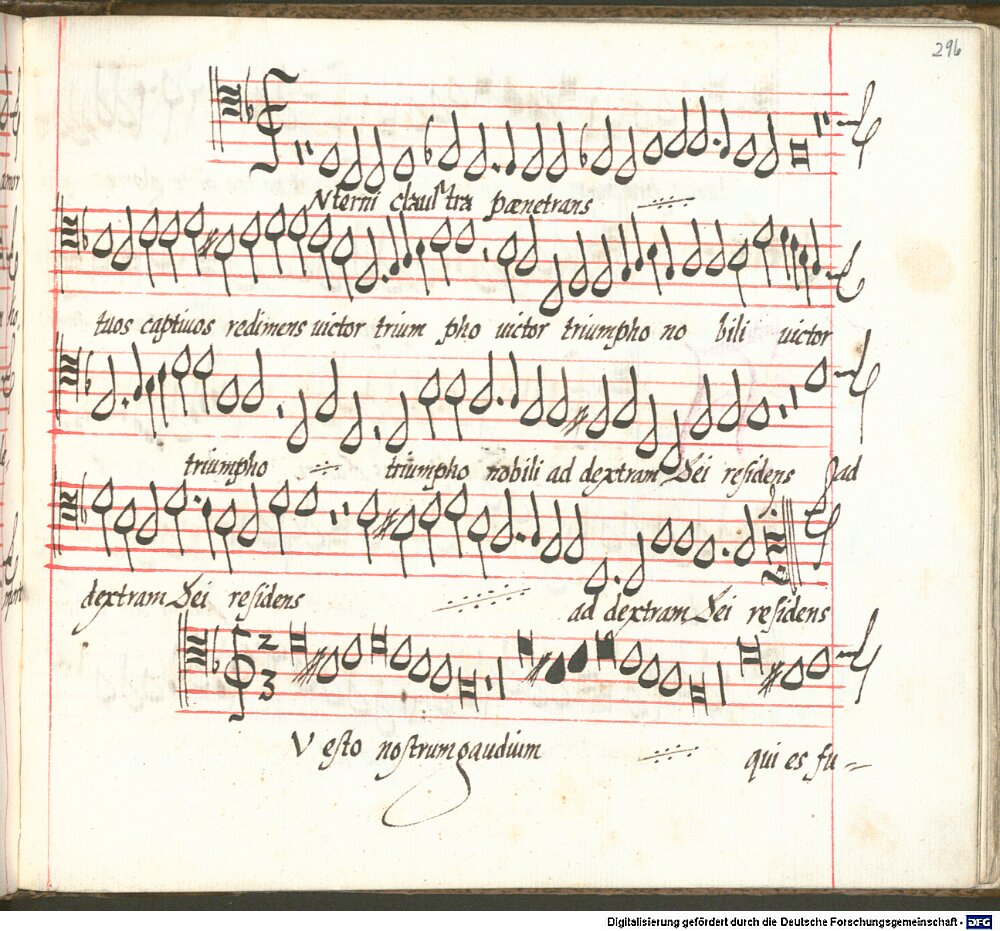 296
Nterni claustra pænetrans
tuos captiuos redimens uictor trium pho uictor triumpho no bili uictor
triumpho triumpho nobili ad dextram Dei residens ad
dextram Dei residens ad dextram Dei residens
2
3
V esto nostrum gaudium qui es fu=
Digitalisierung gefördert durch die Deutsche Forschungsgemeinschaft - DFG